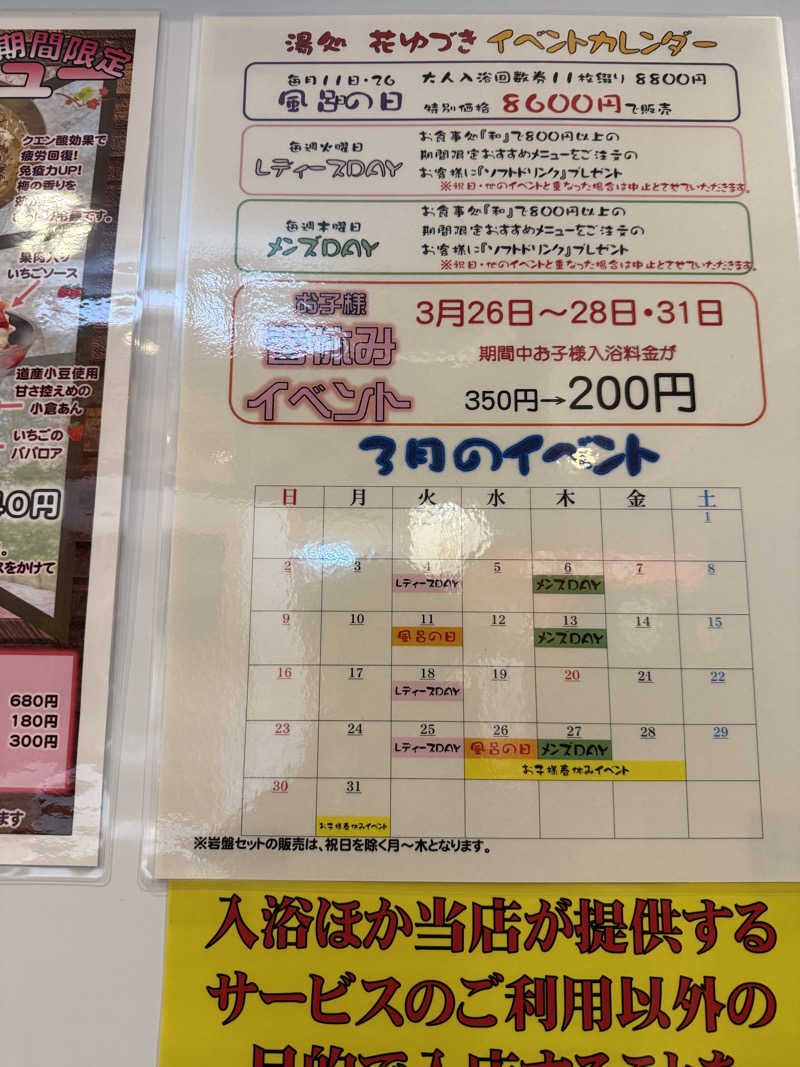 期間限定
クエン酸効果で
疲労回復!
免疫力UP!
梅の香りを
果肉入り
いちごソース
道産小豆使用
甘さ控えめの
小倉あん
いちごの
ババロア
40円
をかけて
680円
180円
300円
ます
湯処 花ゆづき イベントカレンダー
毎月11日・26
風呂の日
大人入浴回数券11枚綴り 8800円
特別価格 8600円で販売
毎週火曜日
レディースDAY
お食事処『和』で800円以上の
期間限定おすすめメニューをご注文の
お客様に『ソフトドリンク』プレゼント
※祝日・他のイベントと重なった場合は中止とさせていただきます。
毎週木曜日
メンズDAY
お食事処『和』で800円以上の
期間限定おすすめメニューをご注文の
お客様に『ソフトドリンク』プレゼント
※祝日・他のイベントと重なった場合は中止とさせていただきます。
お子様
春休み
イベント
3月26日～28日・31日
期間中お子様入浴料金が
350円→200円
3月のイベント
日 月 火 水 木 金 土
1
2 3 4 5 6 7 8
レディースDAY メンズDAY
9 10 11 12 13 14 15
風呂の日 メンズDAY
16 17 18 19 20 21 22
レディースDAY
23 24 25 26 27 28 29
レディースDAY 風呂の日 メンズDAY
お子様春休みイベント
30 31
お子様春休みイベント
※岩盤セットの販売は、祝日を除く月～木となります。
入浴ほか当店が提供する
サービスのご利用以外の
目的で入店することを